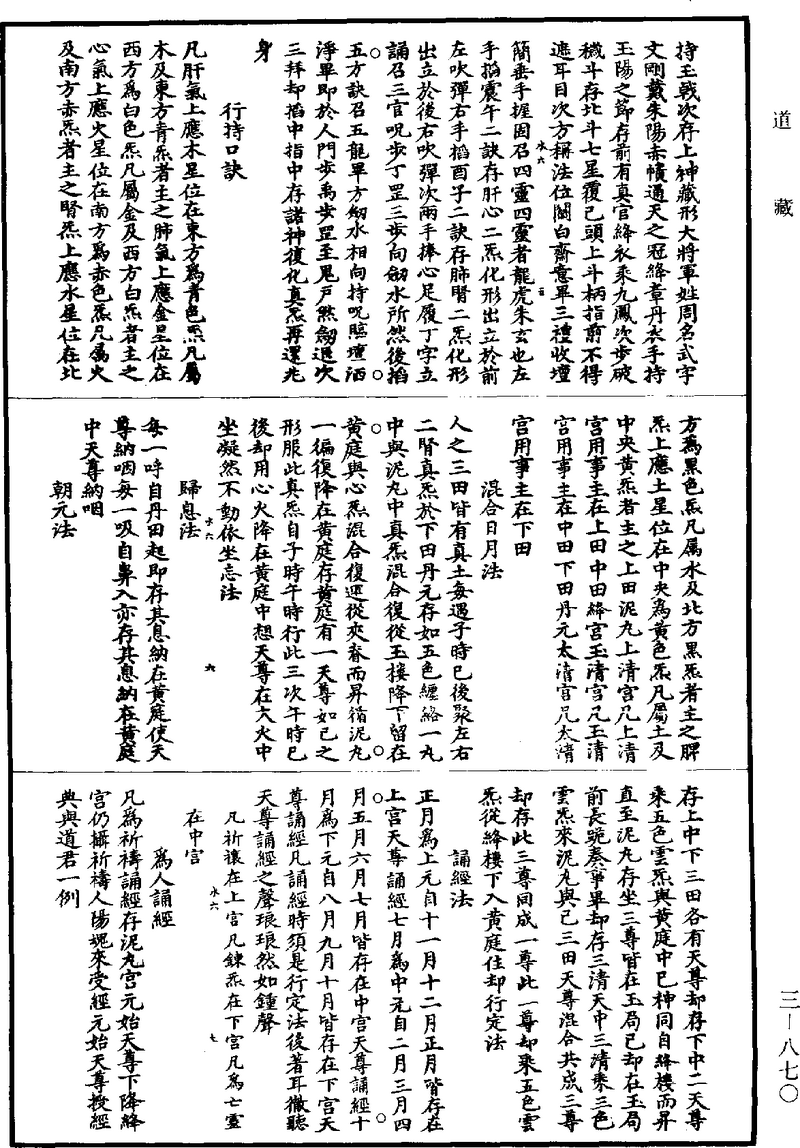 道藏
持玉戟次存上神藏形大將軍姓周名式字
文剛戴朱陽赤幘通天之冠絳章丹衣手持
玉陽之節存前有真官絳衣乘九鳳次步破
穢斗存北斗七星覆己頭上斗柄指前不得
遮耳目次方稱法位關白齋意畢三禮收壇
簡垂手握固召四靈四靈者龍虎朱玄也左
手搯震午二訣存肝心二炁化形出立於前
左吹彈右手搯酉子二訣存肺腎二炁化形
出立於後右吹彈次兩手捧心足履丁字立
誦召三官呪步丁罡三步向劒水所然後搯
五方訣召五龍畢方劒水相向持呪臨壇洒
淨畢即於人門步禹步罡至鬼戶煞劒退次
三拜却搯中指中存諸神復化真炁再還兆
身
行持口訣
凡肝氣上應木星位在東方為青色炁凡屬
木及東方青炁者主之肺氣上應金星位在
西方為白色炁凡屬金及西方白炁者主之
心氣上應火星位在南方為赤色炁凡屬火
及南方赤炁者主之腎炁上應水星位在北
方為黑色炁凡屬水及北方黑炁者主之脾
炁上應土星位在中央為黃色炁凡屬土及
中央黃炁者主之上田泥丸上清宮凡上清
宮用事主在上田中田絳宮玉清宮凡玉清
宮用事主在中田下田丹元太清宮凡太清
宮用事主在下田
混合日月法
人之三田皆有真土每遇子時已後聚左右
二腎真炁於下田丹元存如五色纏絡一丸
中與泥丸中真炁混合復從玉樓降下留在
黃庭與心炁混合復還從夾脊而昇循泥丸
一徧復降在黃庭存黃庭有一天尊如己之
形服此真炁自子時午時行此三次午時已
後却用心火降在黃庭中想天尊在大火中
坐凝然不動依坐忘法
歸息法
每一呼自丹田起即存其息納在黃庭使天
尊納咽每一吸自鼻入亦存其息納在黃庭
中天尊納咽
朝元法
存上中下三田各有天尊却存下中二天尊
乘五色雲炁與黃庭中己神同自絳樓而昇
直至泥丸存坐三尊皆在玉局己却在玉局
前長跪奏事畢却存三清天中三清乘三色
雲炁來泥丸與己三田天尊混合共成三尊
却存此三尊同成一尊此一尊却乘五色雲
炁從絳樓下入黃庭住却行定法
誦經法
正月為上元自十一月十二月正月皆存在
上宮天尊誦經七月為中元自二月三月四
月五月六月七月皆存在中宮天尊誦經十
月為下元自八月九月十月皆存在下宮天
尊誦經凡誦經時須是行定法後著耳微聽
天尊誦經之聲琅琅然如鍾聲
凡祈禳在上宮凡鍊炁在下宮凡為亡靈
在中宮
為人誦經
凡為祈禱誦經存泥丸宮元始天尊下降絳
宮仍攝祈禱人陽魂來受經元始天尊授經
典與道君一例
三—八七〇